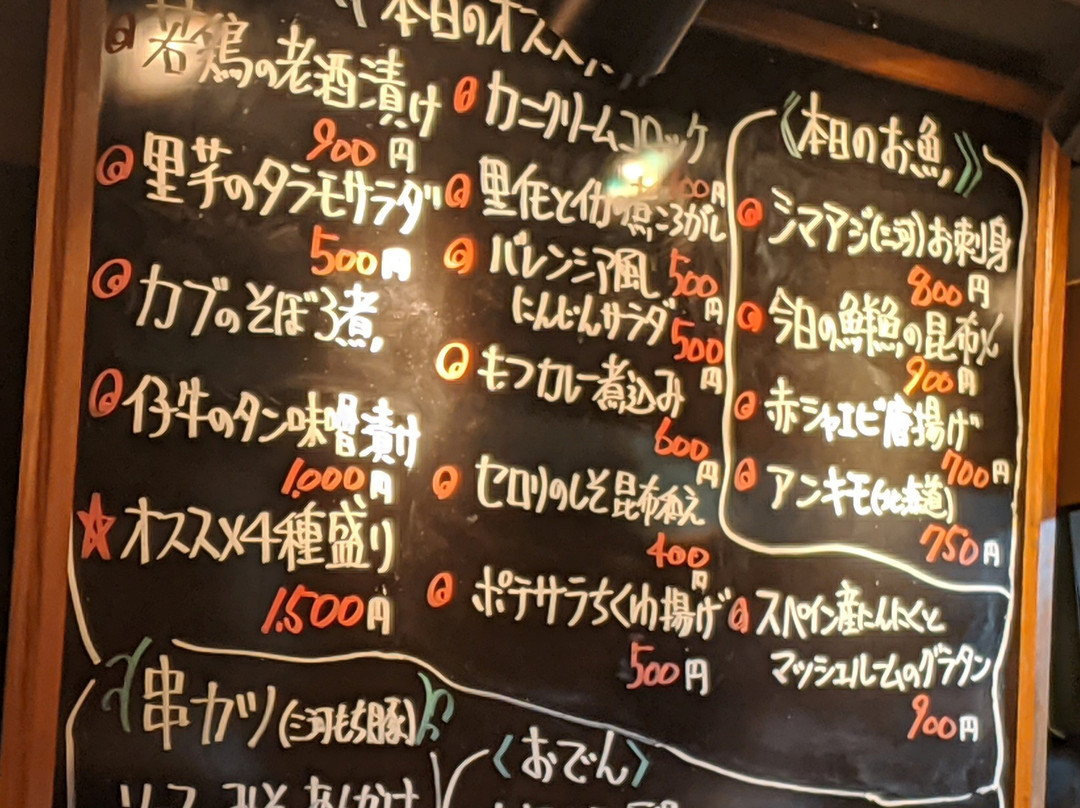 本日のオススメ
若鶏の老酒漬け
900円
里芋のタラモサラダ
500円
カブのそぼろ煮
仔牛のタン味噌漬け
1.000円
オススメ4種盛り
1.500円
カニクリームコロッケ
00円
里芋とイカの煮ころがし
500円
バレンシア風
にんじんサラダ
500円
もつカレー煮込み
600円
セロリのしそ昆布和え
400円
ポテサラちくわ揚げ
500円
《本日のお魚》
シマアジ(三河)お刺身
800円
今日の鮮魚の昆布〆
900円
赤シャエビ唐揚げ
700円
アンキモ(北海道)
750円
スペイン産にんにくと
マッシュルームのグラタン
900円
串カツ(三河もち豚)
〈おでん〉